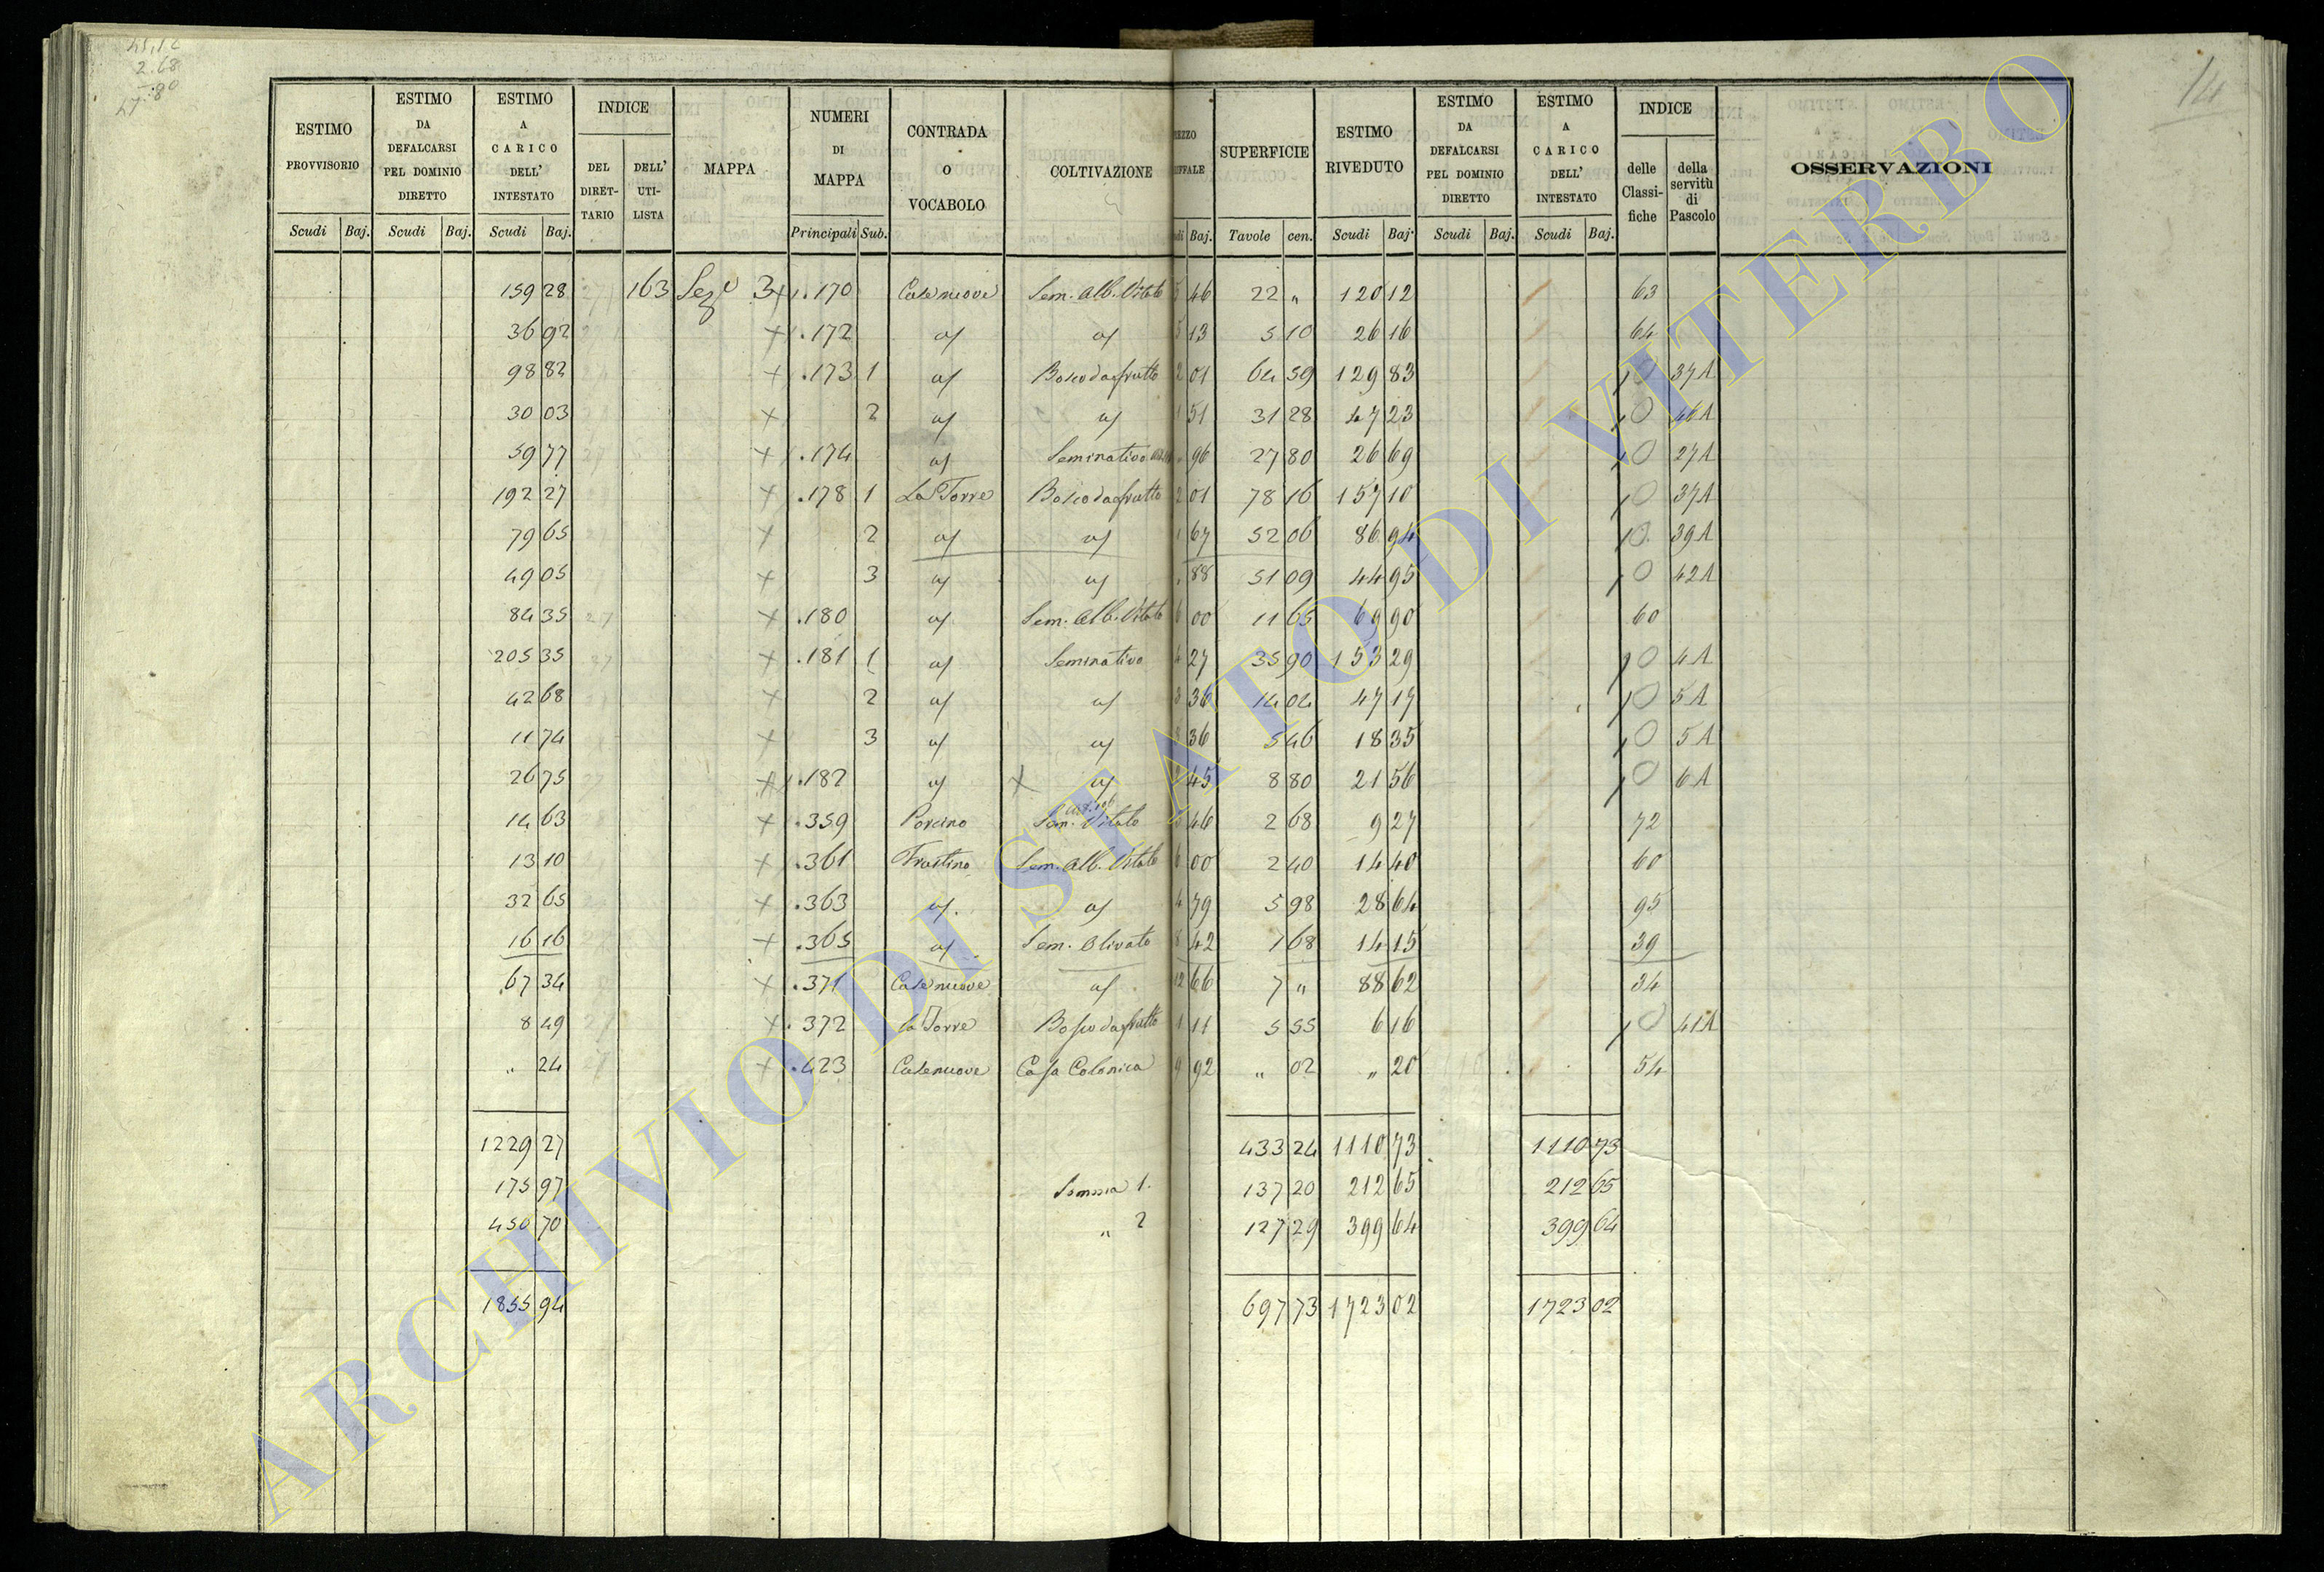 45,12
2.68
:80
47
14
ESTIMO PROVVISORIO
ESTIMO DA DEFALCARSI PEL DOMINIO DIRETTO
ESTIMO A CARICO DELL' INTESTATO
INDICE
DEL DIRETTARIO
DELL' UTILISTA
MAPPA
NUMERI DI MAPPA
CONTRADA O VOCABOLO
COLTIVAZIONE
SUPERFICIE
ESTIMO RIVEDUTO
ESTIMO DA DEFALCARSI PEL DOMINIO DIRETTO
ESTIMO A CARICO DELL' INTESTATO
INDICE
delle Classifiche
della servitù di Pascolo
OSSERVAZIONI
Scudi Baj. Scudi Baj. Scudi Baj. Principali Sub. Baj. Tavole cen. Scudi Baj. Scudi Baj. Scudi Baj.
159 28 163 Sez.e 3 + .170 Casenuove Sem. Alb. Vitato 5 46 22 " 120 12 63
36 92 + .172 a/ a/ 5 13 5 10 26 16 64
98 82 + .173 1 a/ Bosco da frutto 2 01 64 59 129 83 10 37 A
30 03 + 2 a/ a/ 1 51 31 28 47 23 10 46 A
59 77 + .174 a/ Seminativo " 96 27 80 26 69 10 27 A
192 27 + .178 1 La Torre Bosco da frutto 2 01 78 16 157 10 10 37 A
79 65 + 2 a/ a/ 1 67 52 06 86 94 10 39 A
49 05 + 3 a/ a/ " 88 51 09 44 95 10 42 A
84 35 + .180 a/ Sem. Alb. Vitato 6 00 11 65 69 90 60
205 35 + .181 1 a/ Seminativo 4 27 35 90 153 29 10 4 A
42 68 + 2 a/ a/ 3 36 14 04 47 17 10 5 A
11 74 + 3 a/ a/ 3 36 5 46 18 35 10 5 A
26 75 + .182 a/ + a/ 2 45 8 80 21 56 10 6 A
14 63 + .359 Porcino Sem. Vitato 3 46 2 68 9 27 72
13 10 + .361 Frastino Sem. Alb. Vitato 6 00 2 40 14 40 60
32 65 + .363 a/ a/ 4 79 5 98 28 64 95
16 16 + .365 a/ Sem. Olivato 8 42 1 68 14 15 39
67 34 + .371 Casenuove a/ 12 66 7 " 88 62 34
8 49 + .372 la Torre Bosco da frutto 1 11 5 55 6 16 10 41 A
" 24 + .423 Casenuove Casa Colonica 9 92 " 02 " 20 54
1229 27 433 24 1110 73 1110 73
175 97 Somma 1. 137 20 212 65 212 65
450 70 " 2 127 29 399 64 399 64
1855 94 697 73 1723 02 1723 02
ARCHIVIO DI STATO DI VITERBO